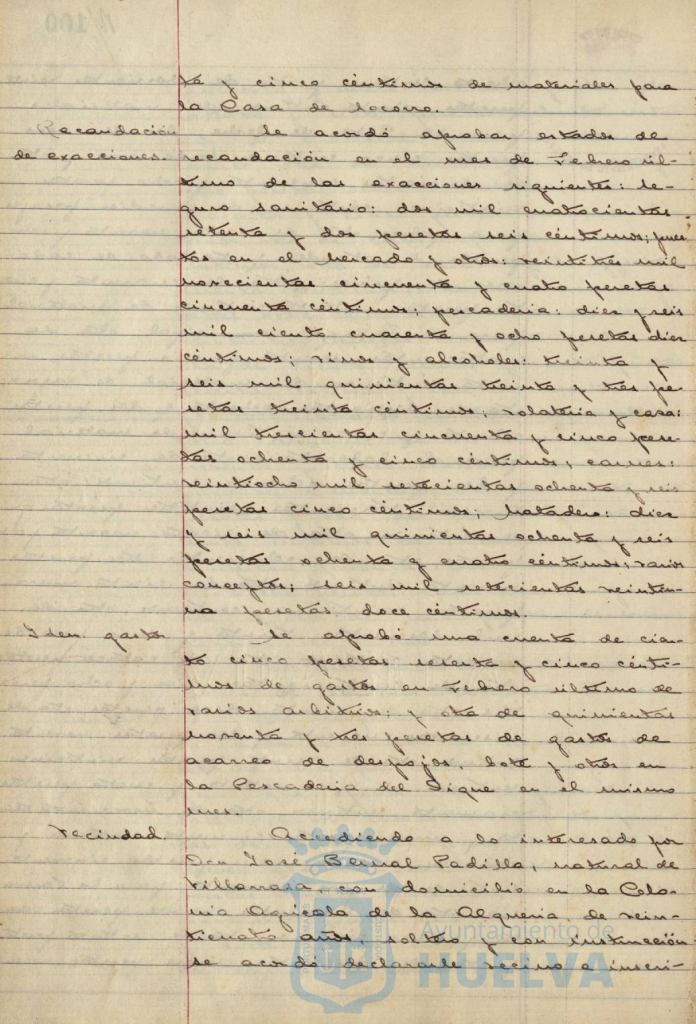 ta y cinco céntimos de materiales para
la Casa de Socorro.
Recaudación
de exacciones.
Se acordó aprobar estados de
recaudación en el mes de Febrero úl-
timo de las exacciones siguientes: Se-
guro sanitario: dos mil cuatrocientas
setenta y dos pesetas seis céntimos; pues-
tos en el Mercado y otros: veintitres mil
novecientas cincuenta y cuatro pesetas
cincuenta céntimos; pescaderia: diez y seis
mil ciento cuarenta y ocho pesetas diez
céntimos; vinos y alcoholes: treinta y
seis mil quinientas treinta y tres pe-
setas treinta céntimos; volateria y caza:
mil trescientas cincuenta y cinco pese-
tas ochenta y cinco céntimos; carnes:
veintiocho mil setecientas ochenta y seis
pesetas cinco céntimos; Matadero: diez
y seis mil quinientas ochenta y seis
pesetas ochenta y cuatro céntimos; varios
conceptos; seis mil setecientas veintiu-
na pesetas doce céntimos.
Idem. gastos
Se aprobó una cuenta de cien-
to cinco pesetas sesenta y cinco cénti-
mos de gastos en Febrero último de
varios arbitrios; y otra de quinientas
noventa y tres pesetas de gastos de
acarreo de despojos, bote y otros en
la Pescaderia del Dique en el mismo
mes.
Vecindad.
Accediendo a lo interesado por
Don José Bernal Padilla, natural de
Villarrasa, con domicilio en la Colo-
nia Agricola de la Alqueria, de vein-
ticuatro años, soltero y con instrucción
se acordó declararle vecino e inscri-
Ayuntamiento de
HUELVA